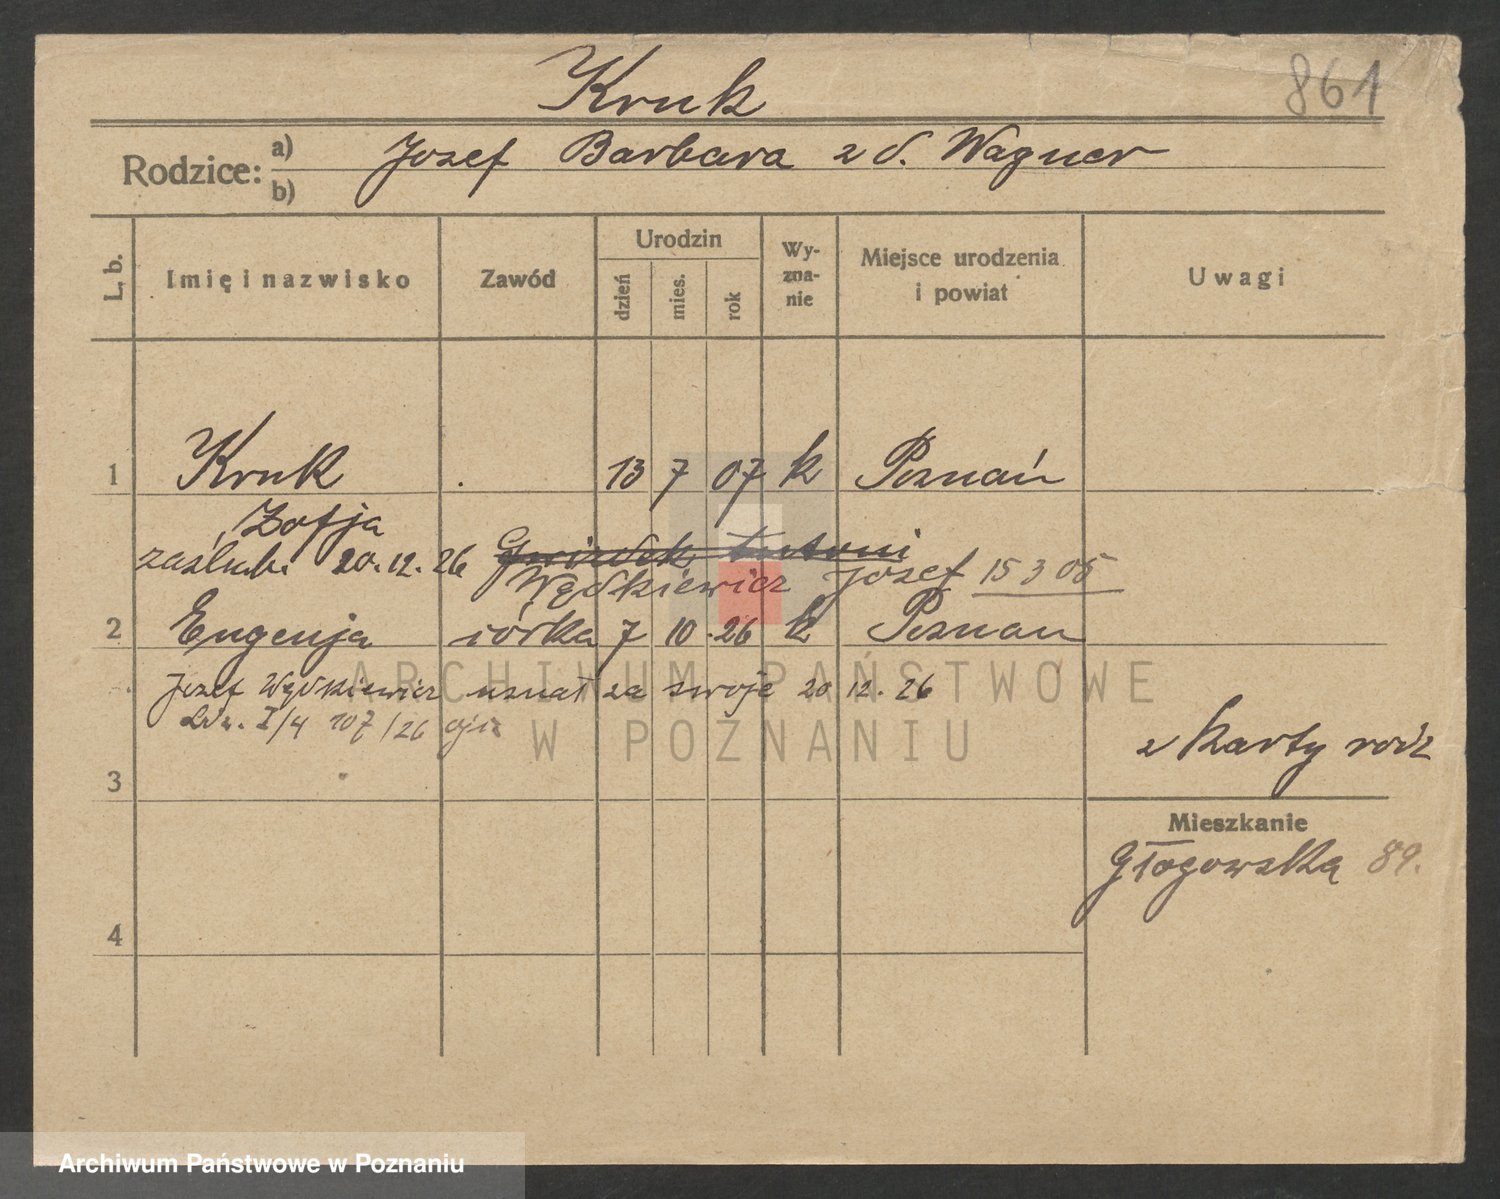 Kruk
861
Rodzice: a) Jozef Barbara z d. Wagner
b)
L. b.
Imię i nazwisko
Zawód
Urodzin
dzień
mies.
rok
Wy-
zna-
nie
Miejsce urodzenia
i powiat
Uwagi
1 Kruk 13 7 07 k Poznań
Zofja
zaślub. 20.12.26 Gwizdek Antoni
Wędkiewicz Jozef 15 3 05
2 Eugenja córka 7 10.26 k Poznan
Jozef Wędkiewicz uznał za swoje 20 12.26
Ldz. I/4 107/26
z Karty rodz
3
Mieszkanie
Głogowska 89.
4
ARCHIWUM PAŃSTWOWE
W POZNANIU
Archiwum Państwowe w Poznaniu